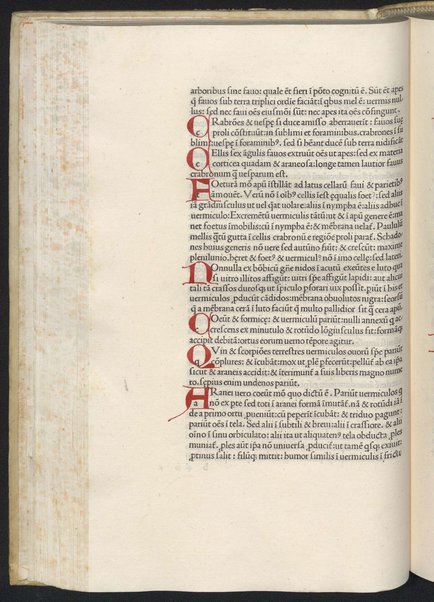 arboribus sine fauo: quale ēt fieri ī pōto cognitū ē. Sūt ēt apes
q̄ fauos sub terra triplici ordīe faciāt ī qbus mel ē: uermis nul
lus: sed nec faui oēs eiusmōi sūt: nec apes ita oēs cōfingunt.
CRabrōes & uespę si duce amisso aberrauerīt: fauos sug
c proli cōstituūt: ī sublimi et foraminibus. crabrones ī su
blimi: uespę ī foraminib⁹. sed si hēant ducē sub terra nidificāt
CEllis sex āgulis fauos extruūt oēs ut apes: sed ex materia
c corticea quadam & araneosa: longe tamen lautior fauus
crabronum q̄ uesparum est.
FOetura mō apū īstillāt ad latus cellarū faui & parietib⁹
āmouēt. Verū nō ī oīb⁹ cellis īest equalis foet⁹: sed alii
ia grādiusculus ut uel q̄at uolare: aliis nympha ē: aliis adhuc
uermiculo: Excremētū uermiculis tātū: ut & ī apū genere ē: ma
net foetus īmobilis: cū ī nympha ē: & mēbrana uelat̄. Paululū
mellis q̄tū gutta ī cellis crabronū e regiōe proli parat̄. Schado
nes huius generis nō uere sed autūno fiūt: & crescūt: maxime
plenilunio. hęret & foet⁹ & uermicul⁹ nō ī imo cellę: sed latere.
NOnnulla ex bōbicū gn̄e nidos ī acutū exeūtes e luto qua
n si uitro illitos affigūt: uitri spē affigūt lapidi: aut alicui
tali tā crassos duresq̄ ut īspiculo pforari uix possīt. pūt ī his et
uermiculos pducūt cādidos: mēbrana obuolutos nigra: seorsū
q̄ a mēbrana cerā ī luto faciūt q̄ multo pallidior sit q̄ cera apū.
COeūt & formicę: & uermiculū pariūt: nulli annexū q̄ ac
c crescens ex minutulo & rotūdo lōgiusculus fit: formāq̄
accipit debitā: ortus eorum uerno tēpore agitur.
QVin & scorpiōes terrestres uermiculos ouorū spē pariūt
q cōplures: & īcubāt: mox ut ples pfecerūt: pellūt̄ ab ea ipsi
sicut & araneis accidit: & īterimunt̄ a suis liberis magno nume
ro. sępius enim undenos pariūt.
ARanei uero coeūt mō quo dictū ē. Pariūt uermiculos q̄
a nō ex pte sed toti ī aranei formā īmutāt̄. nā & rotūdi iā
de a primo ortu pueniūt: cū peperīt īcubāt: & triduo pagunt:
pariūt oēs ī tela. Sed alii ī subtili & breui: alii ī crassiore. & alii
oīno ī sinu orbiculato: alii ita ut aliquaten⁹ tela obducta ples
muniat̄. ples aūt īpa nō uniuersa pducit̄: ac ut tamē q̄sq̄ exiuit
ptinus salit: filūq̄ mittit: humor similis ī uermiculis ī fricte